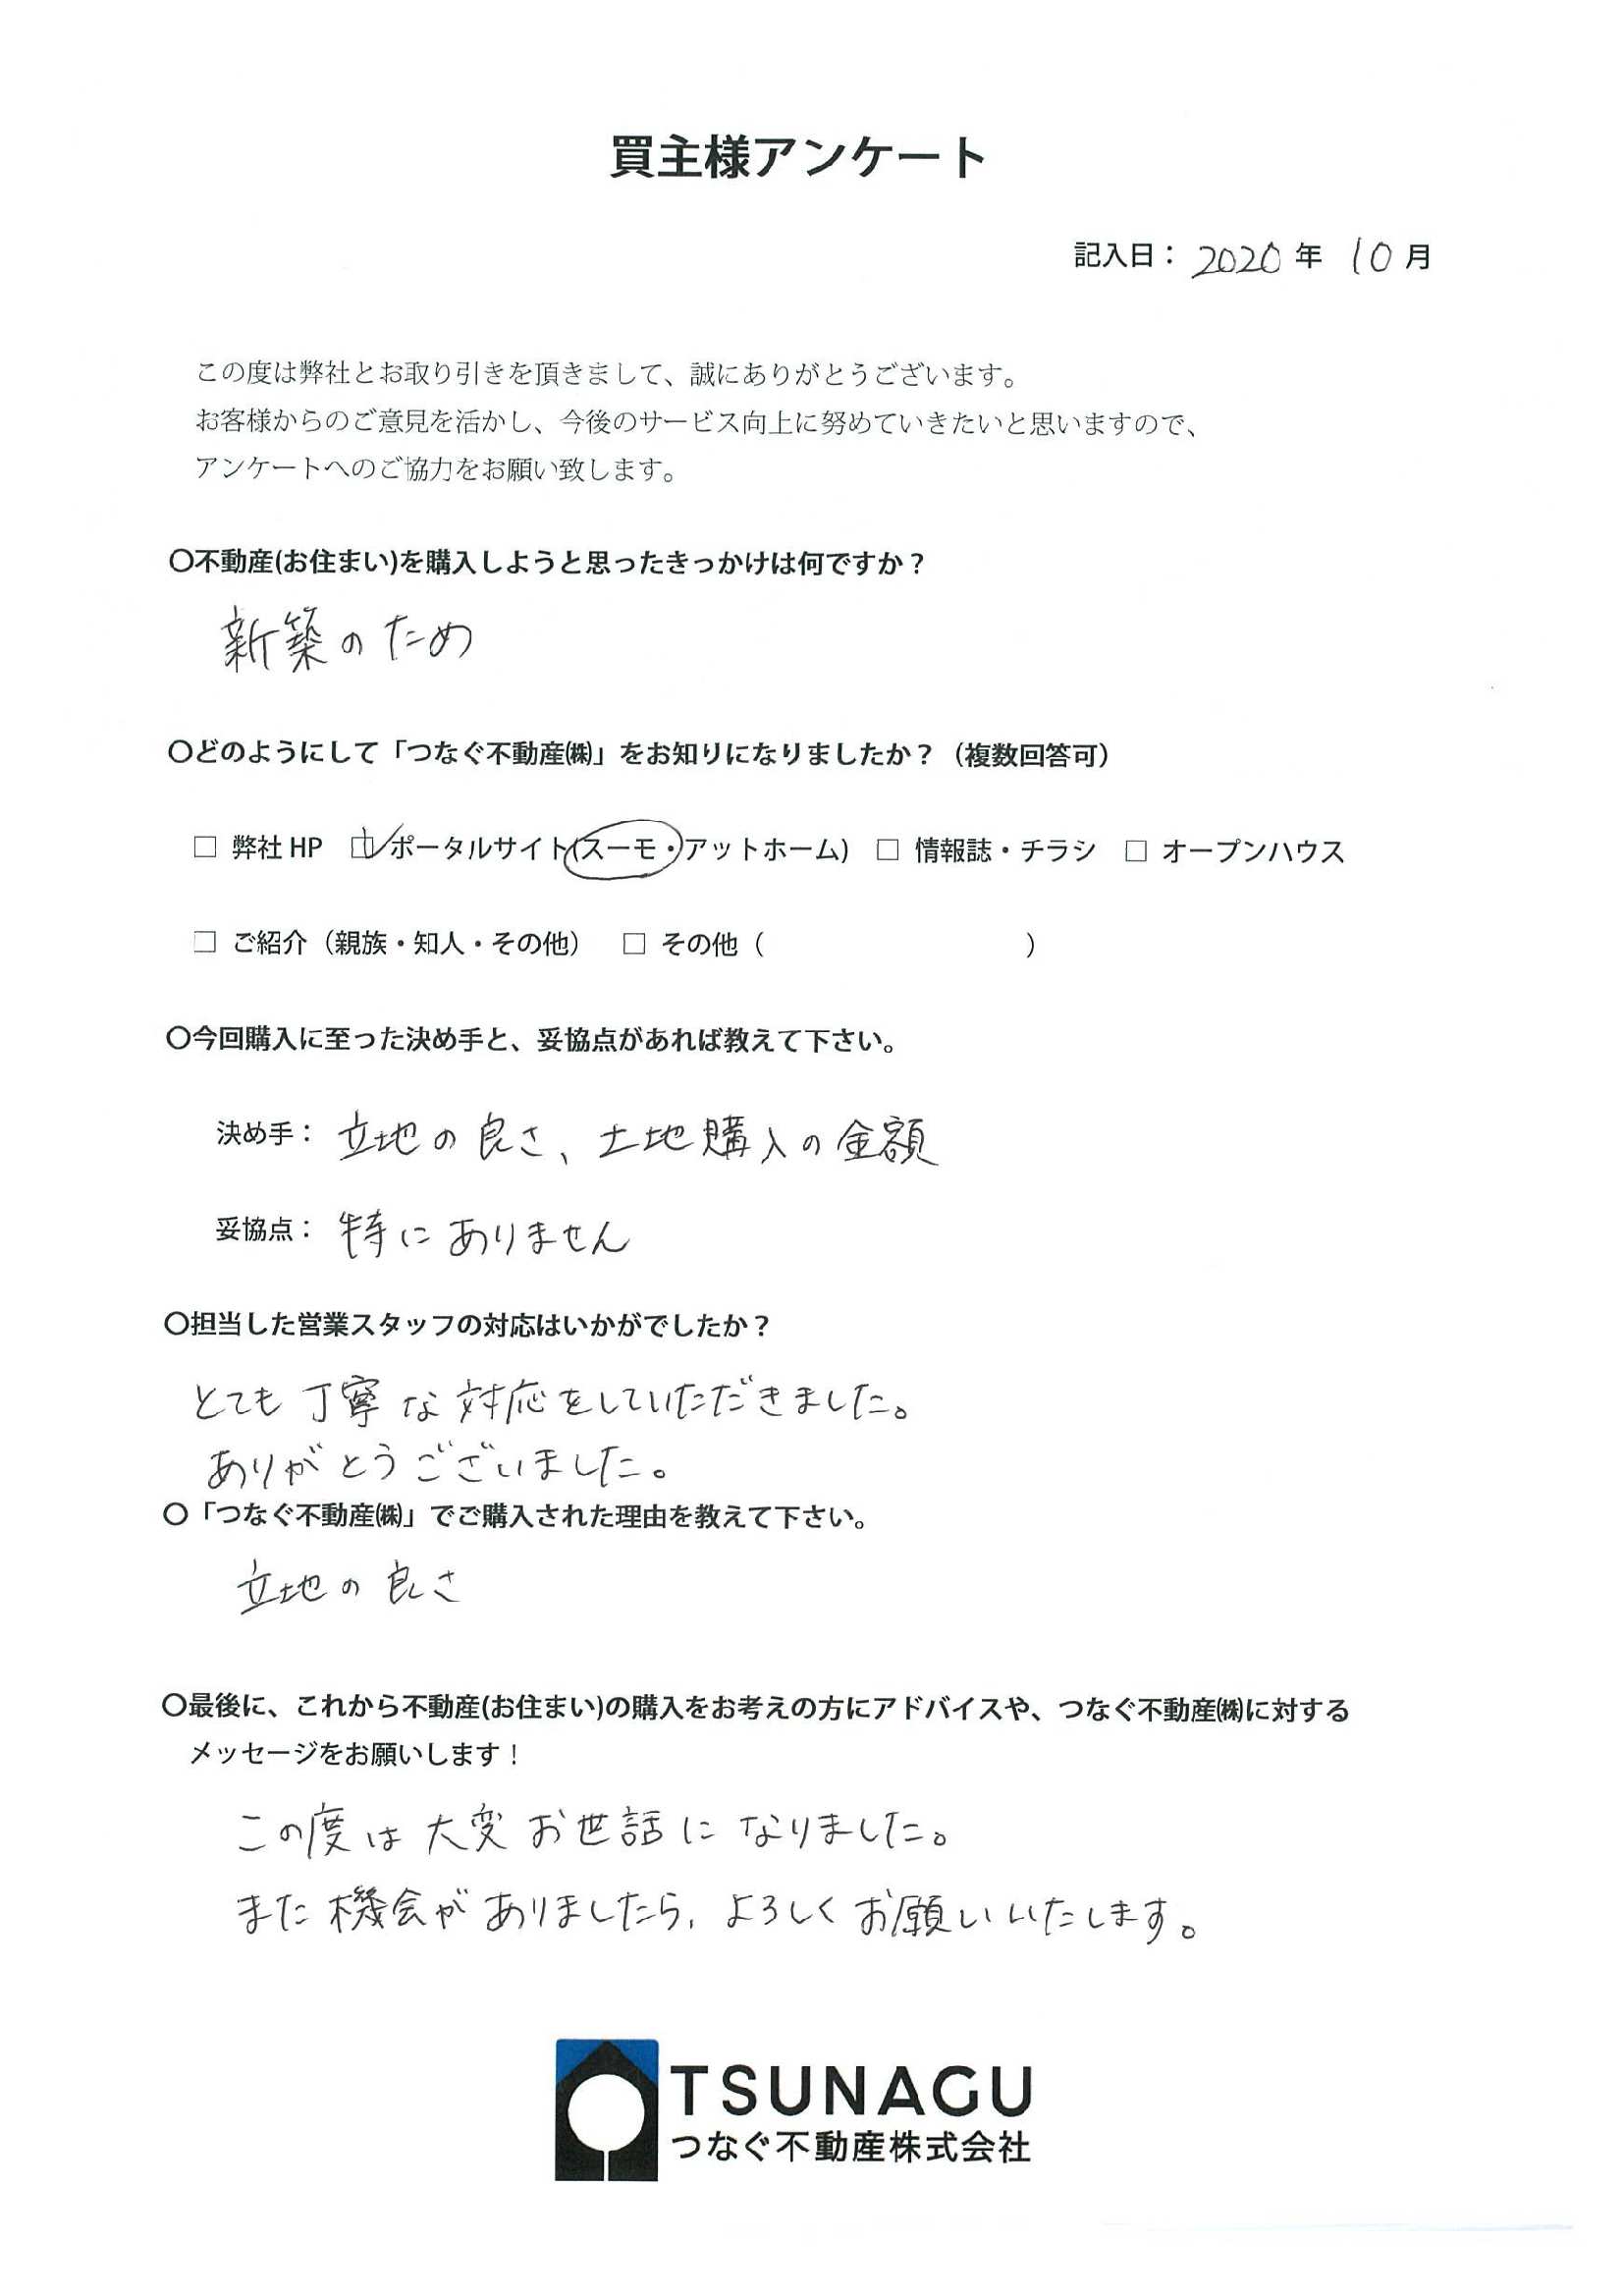 買主様アンケート
記入日： 2020 年 10 月
この度は弊社とお取り引きを頂きまして、誠にありがとうございます。
お客様からのご意見を活かし、今後のサービス向上に努めていきたいと思いますので、
アンケートへのご協力をお願い致します。
〇不動産(お住まい)を購入しようと思ったきっかけは何ですか？
新築のため
〇どのようにして「つなぐ不動産㈱」をお知りになりましたか？（複数回答可）
□ 弊社 HP ☑ ポータルサイト(スーモ・アットホーム) □ 情報誌・チラシ □ オープンハウス
□ ご紹介（親族・知人・その他） □ その他（ ）
〇今回購入に至った決め手と、妥協点があれば教えて下さい。
決め手： 立地の良さ、土地購入の金額
妥協点： 特にありません
〇担当した営業スタッフの対応はいかがでしたか？
とても丁寧な対応をしていただきました。
ありがとうございました。
〇「つなぐ不動産㈱」でご購入された理由を教えて下さい。
立地の良さ
〇最後に、これから不動産(お住まい)の購入をお考えの方にアドバイスや、つなぐ不動産㈱に対する
メッセージをお願いします！
この度は大変お世話になりました。
また機会がありましたら、よろしくお願いいたします。
TSUNAGU
つなぐ不動産株式会社